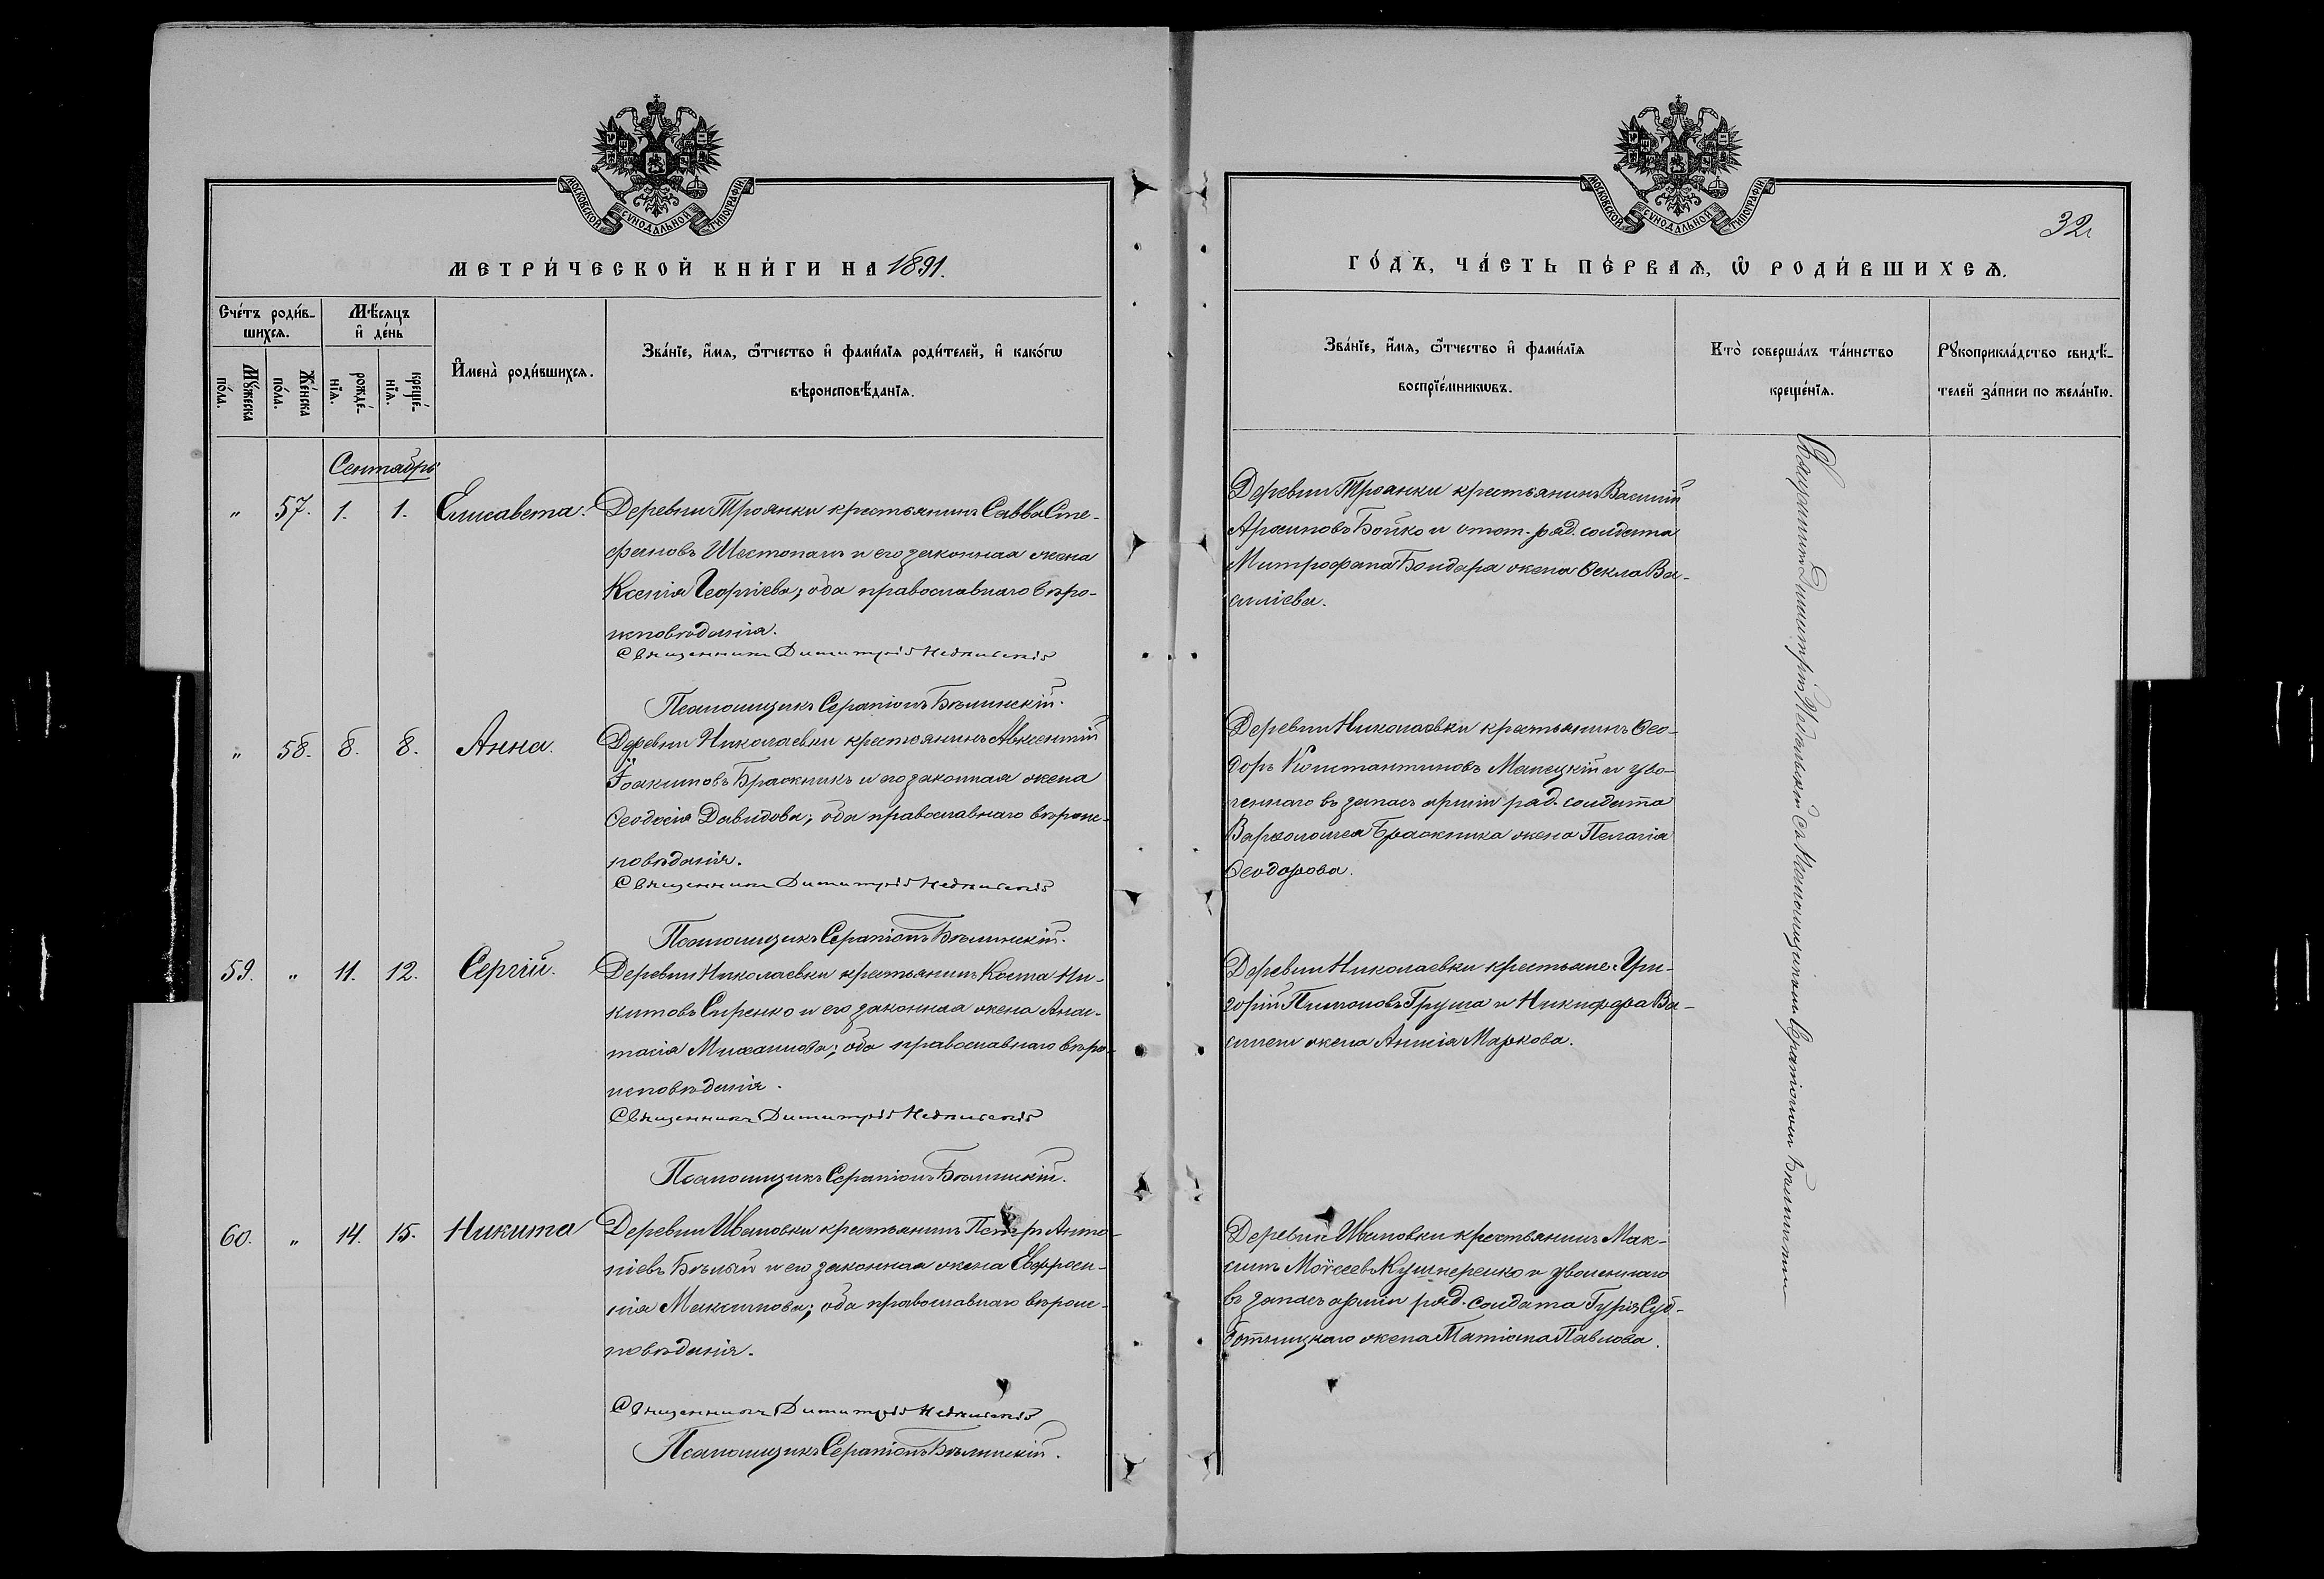 МОСКОВСКОЙ СУНОДАЛЬНОЙ ТИПОГРАФІИ.
МЕТРИ́ЧЕСКОЙ КНИ́ГИ НА 1891.
Сче́тъ роди́в-
шихсѧ.
Мѣ́сѧцъ
и҆ де́нь
Мꙋ́жеска
по́ла.
Же́нска
по́ла.
рожде́-
нїѧ.
креще́-
нїѧ.
И҆мена̀ роди́вшихсѧ.
Зва́нїе, и҆́мѧ, ѿтчество и҆ фами́лїѧ роди́телей, и҆ како́гѡ
вѣроисповѣ́данїѧ.
Сентябрь
" 57. 1. 1. Елисавета. Деревни Троянки крестьянинъ Савва Сте-
фановъ Шестопалъ и его законная жена
Ксенія Георгіева; оба православнаго вѣро-
исповѣданія.
Священникъ Димитрій
Псаломщикъ Серапіонъ Бѣлинскій.
" 58. 8. 8. Анна. Деревни Николаевки крестьянинъ Авксентій
Іоакимовъ Бражникъ и его законная жена
Ѳеодосія Давидова; оба православнаго вѣроис-
повѣданія.
Священникъ Димитрій
Псаломщикъ Серапіонъ Бѣлинскій.
59. " 11. 12. Сергій. Деревни Николаевки крестьянинъ Косма Ни-
китовъ Сиренко и его законная жена Анас-
тасія Михаилова; оба православнаго вѣро-
исповѣданія.
Священникъ Димитрій
Псаломщикъ Серапіонъ Бѣлинскій.
60. " 14. 15. Никита Деревни Ивановки крестьянинъ Петръ Анто-
ніевъ Бѣлый и его законная жена Евфроси-
нія Максимова; оба православнаго вѣроис-
повѣданія.
Священникъ Димитрій
Псаломщикъ Серапіонъ Бѣлинскій.
МОСКОВСКОЙ СУНОДАЛЬНОЙ ТИПОГРАФІИ.
32.
ГО́ДЪ, ЧА́СТЬ ПЕ́РВАѦ, Ѡ҆ РОДИ́ВШИХСѦ.
Зва́нїе, и҆́мѧ, ѿтчество и҆ фами́лїѧ
воспрїе́мникѡвъ.
Кто̀ соверша́лъ та́инство
креще́нїѧ.
Рꙋкоприкла́дство свидѣ́-
телей за́писи по жела́нїю.
Деревни Троянки крестьянинъ Василій
Бойко и отст. ряд. солдата
Митрофана Бондаря жена Ѳекла Ва-
силіева.
Деревни Николаевки крестьянинъ Ѳео-
доръ Константиновъ и уво-
леннаго въ запасъ арміи ряд. солдата
Варѳоломея Бражника жена Пелагія
Ѳеодорова.
Деревни Николаевки крестьяне: Гри-
горій Пимоновъ Груша и Никифора Ва-
жена Анисія Маркова.
Деревни Ивановки крестьянинъ Мак-
симъ Моѵсеевъ Кушнеренко и уволеннаго
въ запасъ арміи ряд. солдата Гурія Суб-
ботницкаго жена Татіана Павлова.
Священникъ Димитрій съ псаломщикомъ Серапіономъ Бѣлинскимъ